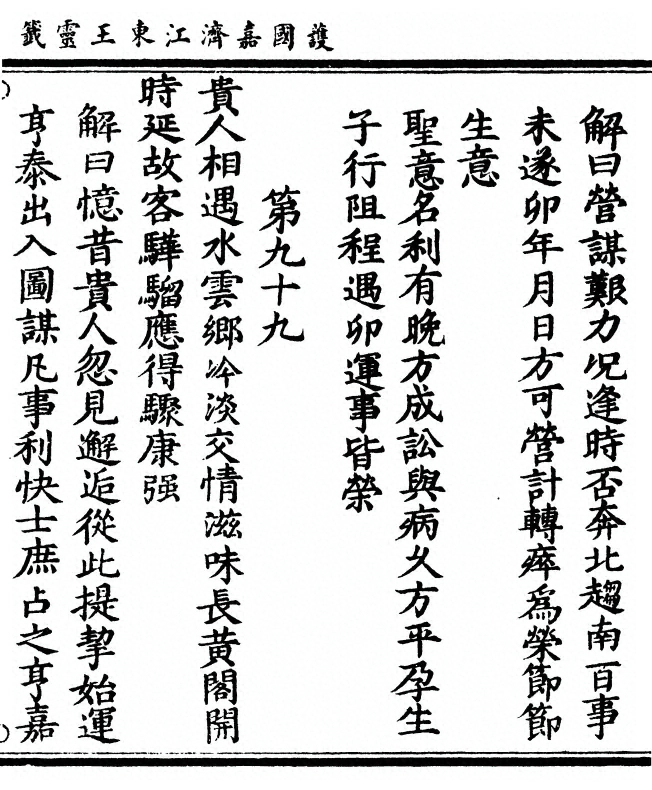 護國嘉濟江東王靈籤
解曰營謀艱力況逢時否奔北趨南百事
未遂卯年月日方可營計轉瘁為榮節節
生意
聖意名利有晚方成訟與病久方平孕生
子行阻程遇卯運事皆榮
第九十九
貴人相遇水雲鄉冷淡交情滋味長黃閣開
時延故客驊騮應得驟康强
解曰憶昔貴人忽見邂逅從此提挈始運
亨泰出入圖謀凡事利快士庶占之亨嘉